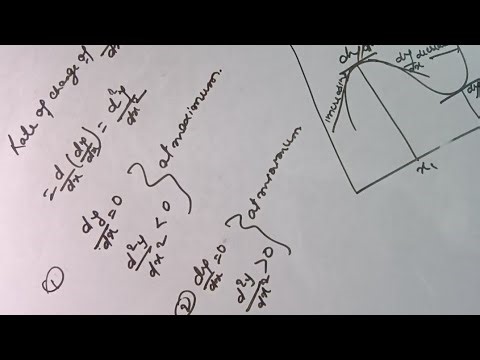 Rate of change of dy/dx
= d/dx (dy/dx) = d²y/dx²
① dy/dx = 0
d²y/dx² < 0 } at maximum.
② dy/dx = 0
d²y/dx² > 0 } at minimum
increasing
dy/dx
x₁